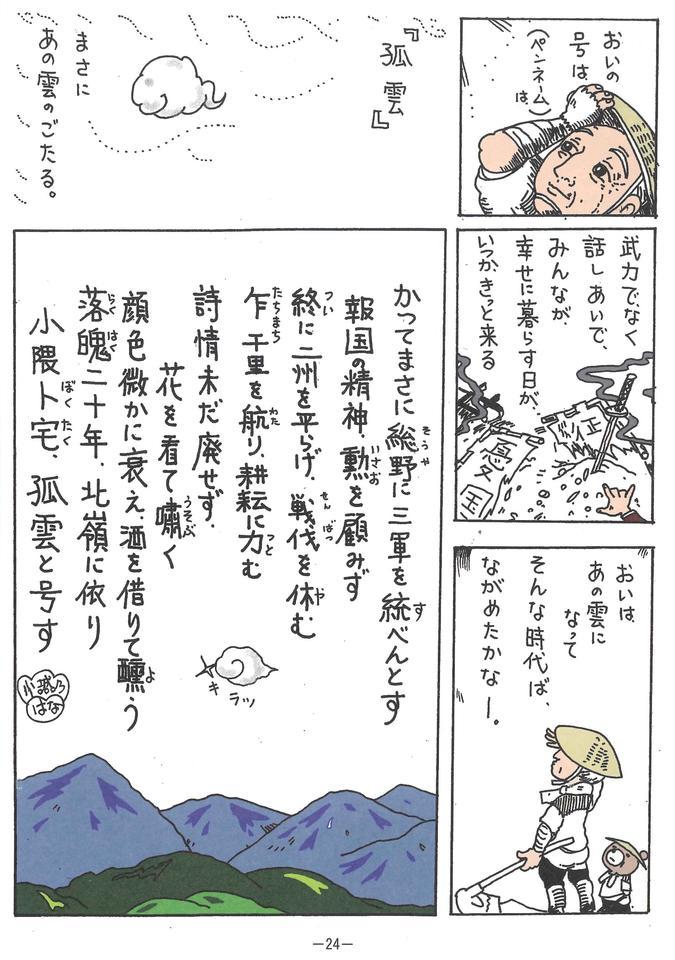 おいの
号は、
(ペンネーム)
は、
『孤雲』
まさに
あの雲のごたる。
武力でなく
話しあいで、
みんなが、
幸せに暮らす日が、
いつか、きっと来る
正
憂
国
おいは、
あの雲に
なって
そんな時代ば、
ながめたかなー。
かつてまさに総野に三軍を統べんとす
そうや
す
報国の精神、勲を顧みず
いさお
終に二州を平らげ、戦伐を休む
つい
せんばつ
や
乍 千里を航り、耕耘に力む
たちまち
わた
つと
詩情未だ廃せず、
花を看て嘯く
うそぶ
顔色微かに衰え、酒を借りて醺う
よ
落魄二十年、北嶺に依り
らくはく
小隈卜宅、孤雲と号す
ぼくたく
キラッ
はな
—24—